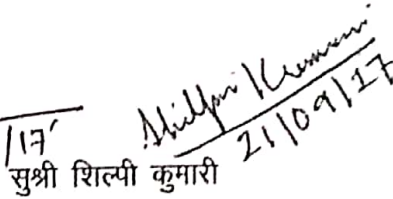 Shilpi Kumari
21/09/17
/17
सुश्री शिल्पी कुमारी